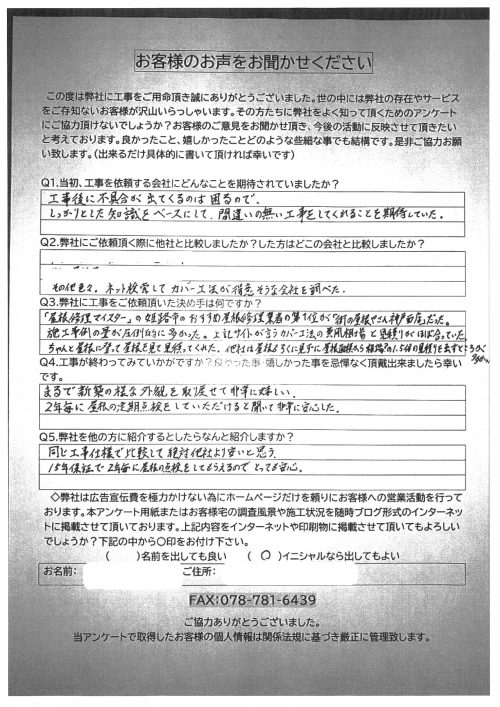 お客様のお声をお聞かせください
この度は弊社に工事をご用命頂き誠にありがとうございました。世の中には弊社の存在やサービス
をご存知ないお客様が沢山いらっしゃいます。その方たちに弊社をよく知って頂くためのアンケート
にご協力頂けないでしょうか？お客様のご意見をお聞かせ頂き、今後の活動に反映させて頂きたい
と考えております。良かったこと、嬉しかったことどのような些細な事でも結構です。是非ご協力お願
い致します。（出来るだけ具体的に書いて頂ければ幸いです）
Q1.当初、工事を依頼する会社にどんなことを期待されていましたか？
工事後に不具合が出てくるのは困るので、
しっかりとした知識をベースにして、間違いの無い工事をしてくれることを期待していた。
Q2.弊社にご依頼頂く際に他社と比較しましたか？した方はどこの会社と比較しましたか？
その他色々、ネット検索してカバー工法が得意そうな会社を調べた。
Q3.弊社に工事をご依頼頂いた決め手は何ですか？
「屋根修理マイスター」の姫路市のおすすめ屋根修理業者の第1位が「街の屋根やさん神戸西店」だった。
施工事例の量が圧倒的に多かった。上記サイトが言うカバー工法の費用相場と見積りがほぼ合っていた
ちゃんと屋根に登って屋根を見て見積ってくれた。他社は屋根をろくに見ずに屋根面積から相場の1.5倍の見積りを出すところが
Q4.工事が終わってみていかがですか？良かった事・嬉しかった事を忌憚なく頂戴出来ましたら幸い
です。
まるで新築の様な外観を取り戻せて非常に嬉しい。
2年毎に屋根の定期点検をしていただけると聞いて非常に安心した。
Q5.弊社を他の方に紹介するとしたらなんと紹介しますか？
同じ工事仕様で比較して絶対他社より安いと思う
15年保証で2年毎に屋根の点検をしてもらえるのでとっても安心。
◇弊社は広告宣伝費を極力かけない為にホームページだけを頼りにお客様への営業活動を行って
おります。本アンケート用紙またはお客様宅の調査風景や施工状況を随時ブログ形式のインターネッ
トに掲載させて頂いております。上記内容をインターネットや印刷物に掲載させて頂いてもよろしい
でしょうか？下記の中から〇印をお付け下さい。
（　）名前を出しても良い　（ 〇 ）イニシャルなら出してもよい
お名前：　ご住所：
FAX：078-781-6439
ご協力ありがとうございました。
当アンケートで取得したお客様の個人情報は関係法規に基づき厳正に管理致します。